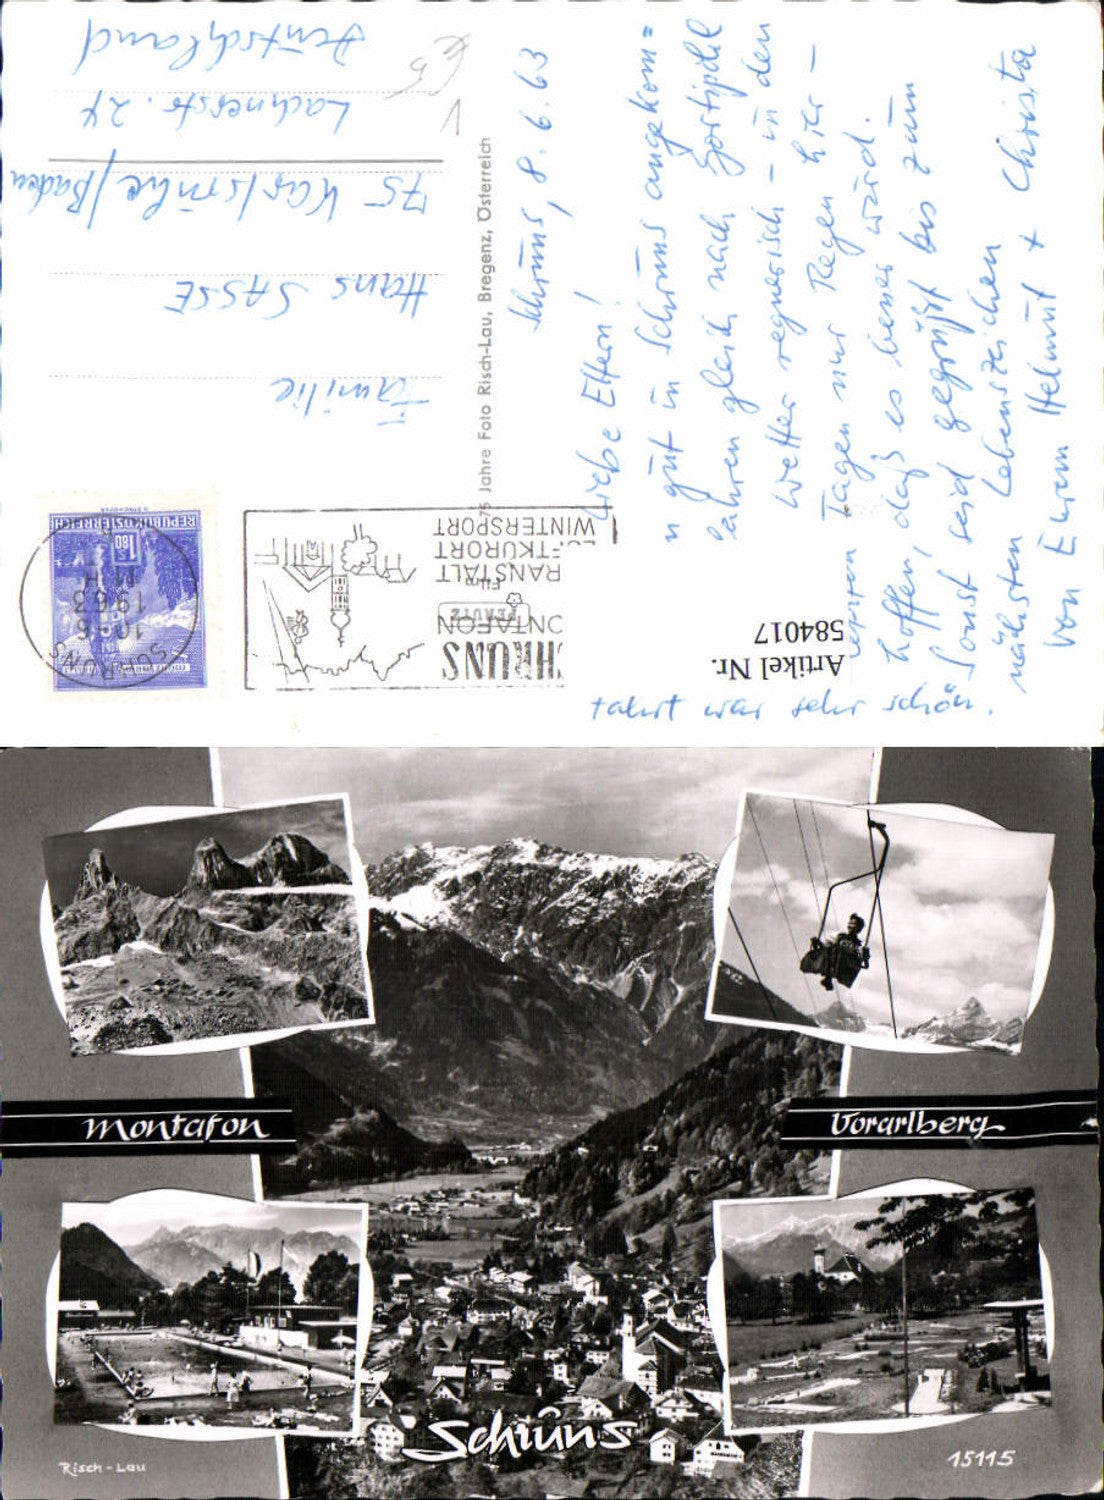 Schruns, 8.6.63
Liebe Eltern!
gut in Schruns angekom=
fahren gleich nach
Wetter regnerisch - in den
letzten Tagen nur Regen hier -
hoffen, daß es besser wird.
Sonst seid gegrüßt bis zum
nächsten Lebenszeichen
von Eurem Helmut + Christa
fahrt war sehr schön.
75 Jahre Foto Risch-Lau, Bregenz, Österreich
Familie
Hans SASSE
75 Karlsruhe/Baden
Lachnerstr. 24
Deutschland
REPUBLIK ÖSTERREICH
1.80
SCHRUNS
10-6
1963
11 H
HRUNS
ONTAFON
RANSTALT
FTKURORT
WINTERSPORT
Artikel Nr.
584017
Montafon
Vorarlberg
Schruns
Risch-Lau
15115